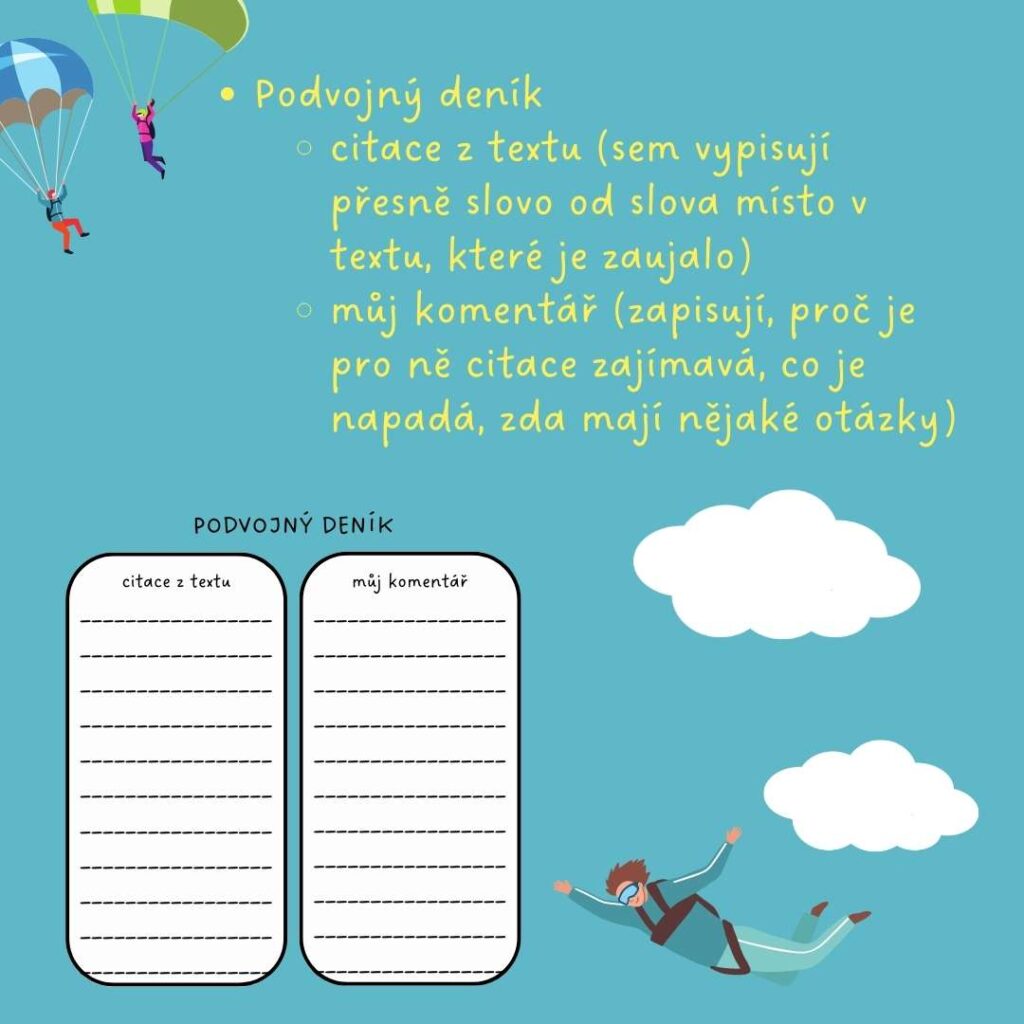 Podvojný deník
citace z textu (sem vypisují
přesně slovo od slova místo v
textu, které je zaujalo)
můj komentář (zapisují, proč je
pro ně citace zajímavá, co je
napadá, zda mají nějaké otázky)
PODVOJNÝ DENÍK
citace z textu
můj komentář